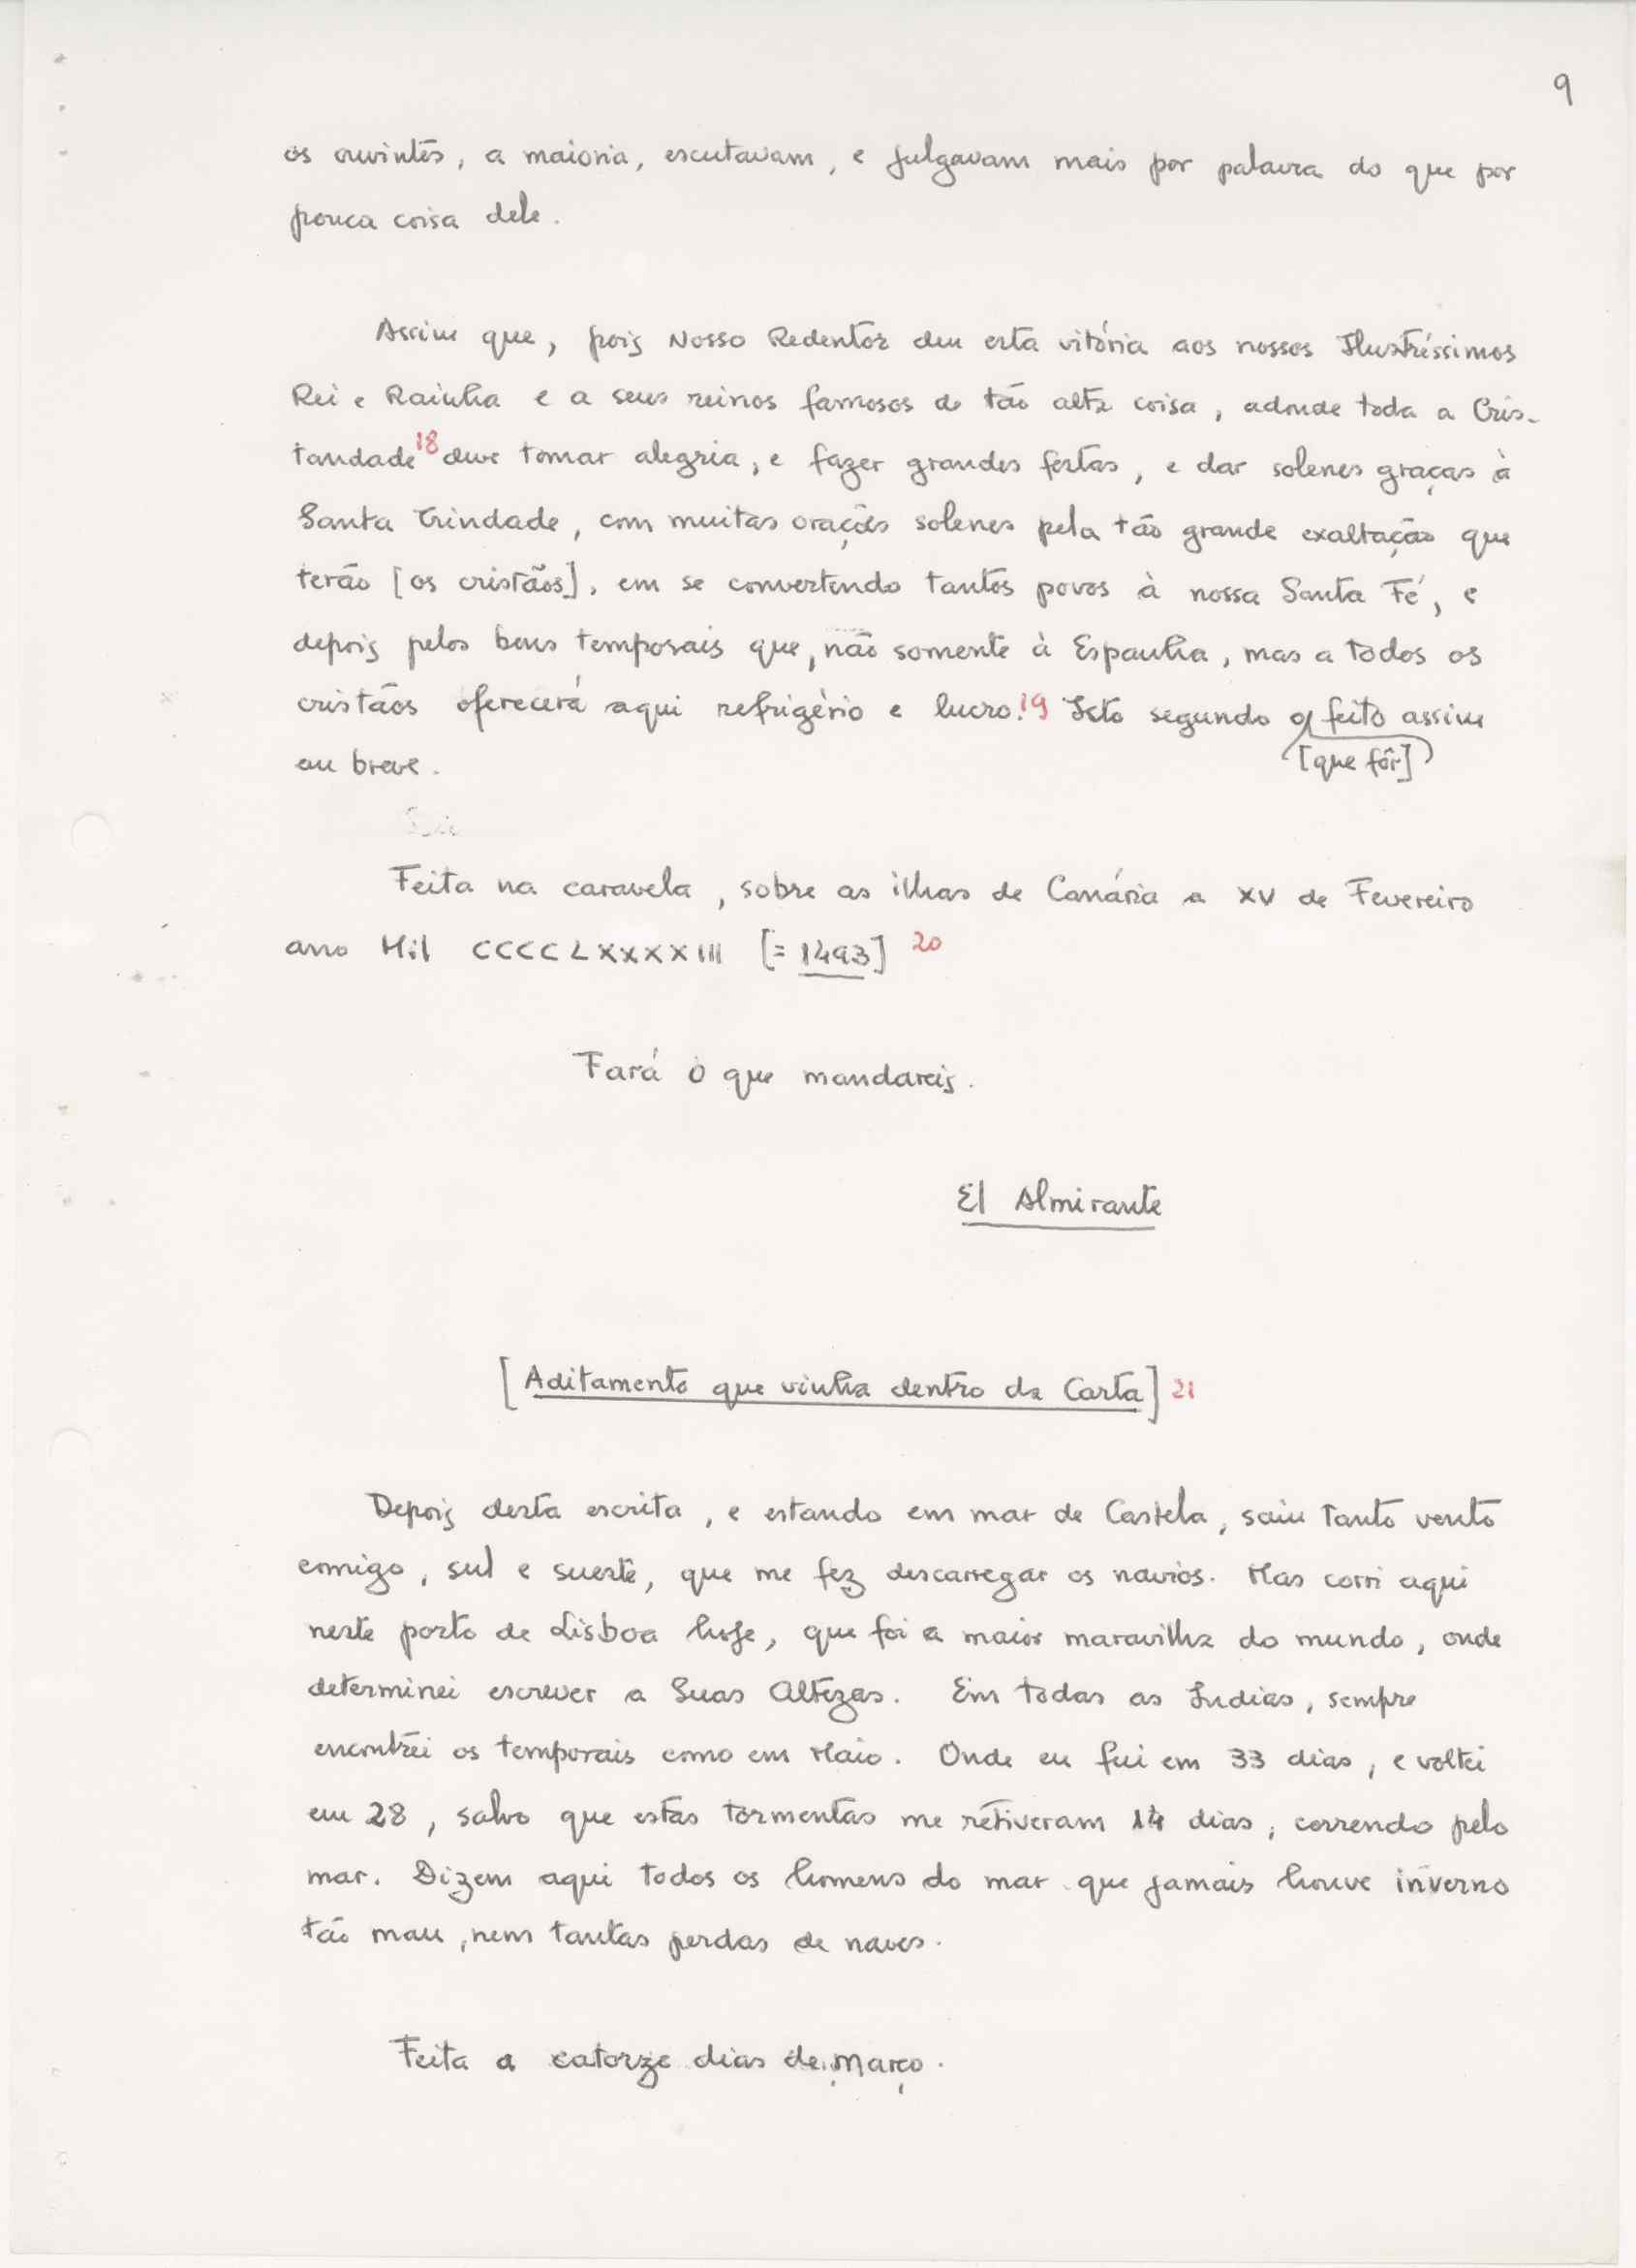 9
os ouvintes, a maioria, escutavam, e julgavam mais por palavra do que por
pouca coisa dele.
Assim que, pois Nosso Redentor deu esta vitória aos nossos Ilustríssimos
Rei e Rainha e a seus reinos famosos de tão alta coisa, adonde toda a Cris-
tandade 18 deve tomar alegria, e fazer grandes festas, e dar solenes graças à
Santa Trindade, com muitas orações solenes pela tão grande exaltação que
terão [os cristãos], em se convertendo tantos povos à nossa Santa Fé, e
depois pelos bens temporais que, não somente à Espanha, mas a todos os
cristãos oferecerá aqui refrigério e lucro. 19 Isto segundo o feito assim
[que fôr]
em breve.
Feita na caravela, sobre as ilhas de Canária a XV de Fevereiro
ano Mil CCCCLXXXXIII [= 1493] 20
Fará o que mandareis.
El Almirante
[Aditamento que vinha dentro da Carta] 21
Depois desta escrita, e estando em mar de Castela, saiu tanto vento
comigo, sul e sueste, que me fez descarregar os navios. Mas corri aqui
neste porto de Lisboa hoje, que foi a maior maravilha do mundo, onde
determinei escrever a Suas Altezas. Em todas as Indias, sempre
encontrei os temporais como em Maio. Onde eu fui em 33 dias, e voltei
em 28, salvo que estas tormentas me retiveram 14 dias, correndo pelo
mar. Dizem aqui todos os homens do mar que jamais houve inverno
tão mau, nem tantas perdas de naves.
Feita a catorze dias de Março.